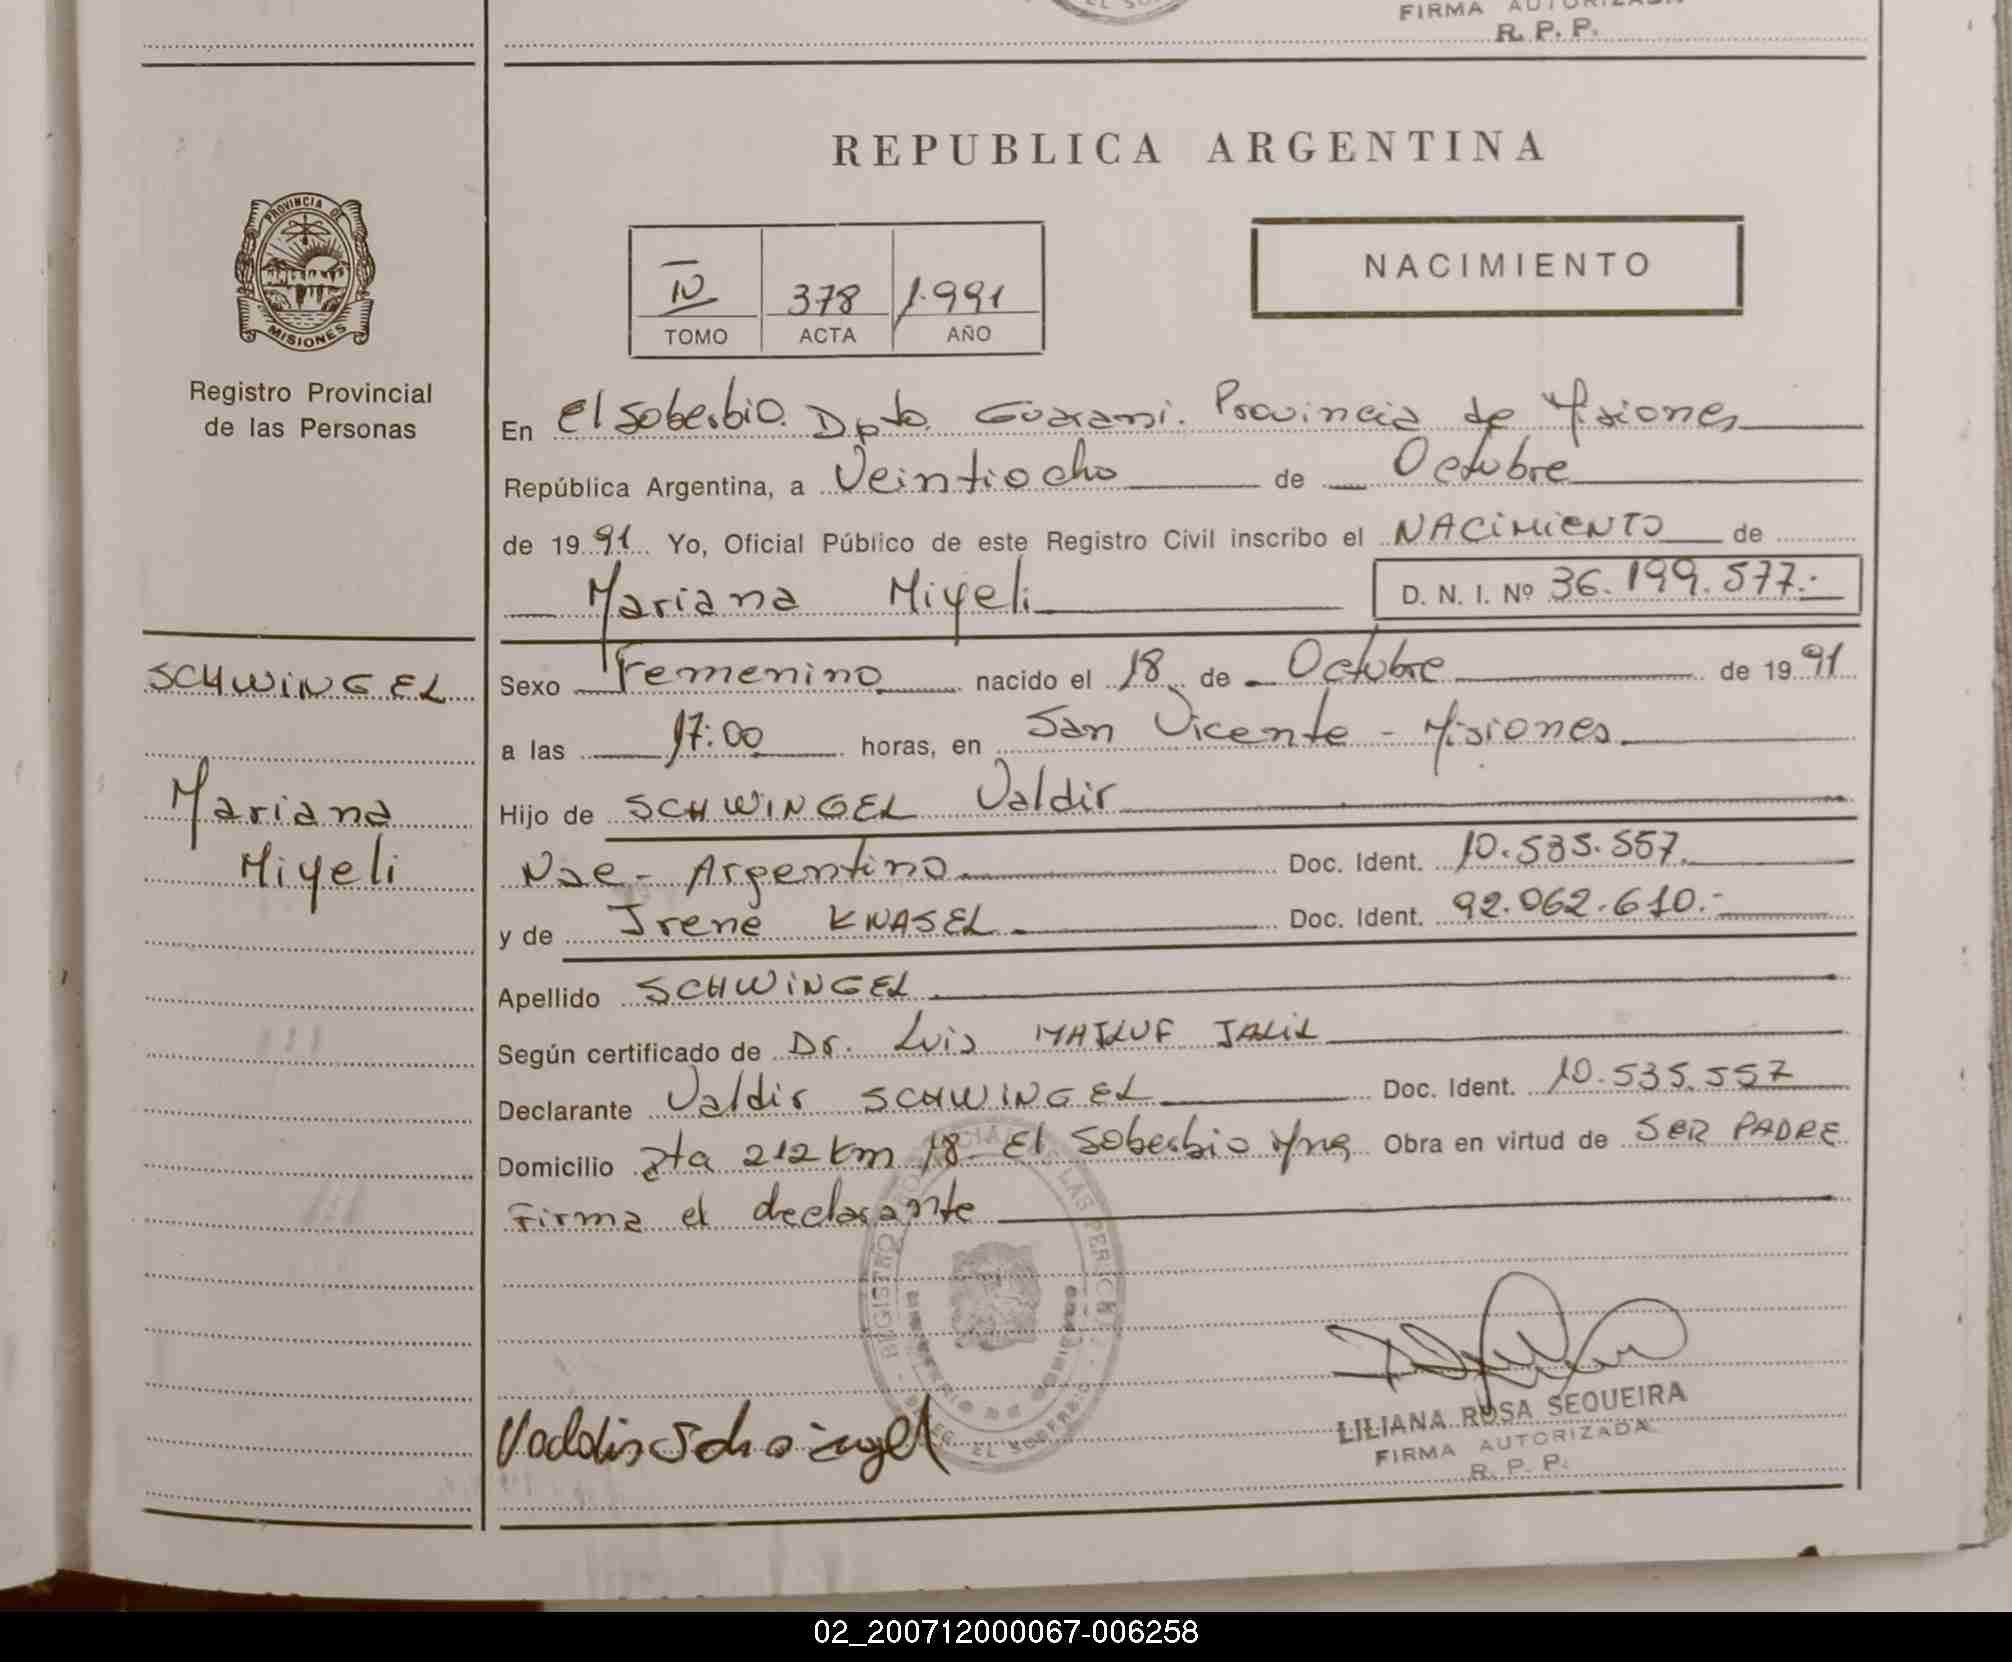 FIRMA AUTORIZADA
R. P. P.
REPUBLICA ARGENTINA
PROVINCIA DE
MISIONES
Registro Provincial
de las Personas
IV 378 1.991
TOMO ACTA AÑO
NACIMIENTO
En El Soberbio. Dpto. Guarani. Provincia de Misiones
República Argentina, a Veintiocho de Octubre
de 1991 Yo, Oficial Público de este Registro Civil inscribo el NACIMIENTO de
Mariana Miyeli D. N. I. Nº 36.199.577.-
SCHWINGEL
Mariana
Miyeli
Sexo Femenino nacido el 18 de Octubre de 1991
a las 17:00 horas, en San Vicente - Misiones
Hijo de SCHWINGEL Valdir
Nac- Argentino Doc. Ident. 10.535.557.
y de Irene KNASEL Doc. Ident. 92.062.610.-
Apellido SCHWINGEL
Según certificado de Dr. Luis MAILUF JALIL
Declarante Valdir SCHWINGEL Doc. Ident. 10.535.557
Domicilio Rta 212 Km 18 El Soberbio Mnes Obra en virtud de SER PADRE
Firma el declarante
Valdir Schwingel
LILIANA ROSA SEQUEIRA
FIRMA AUTORIZADA
R. P. P.
02_200712000067-006258